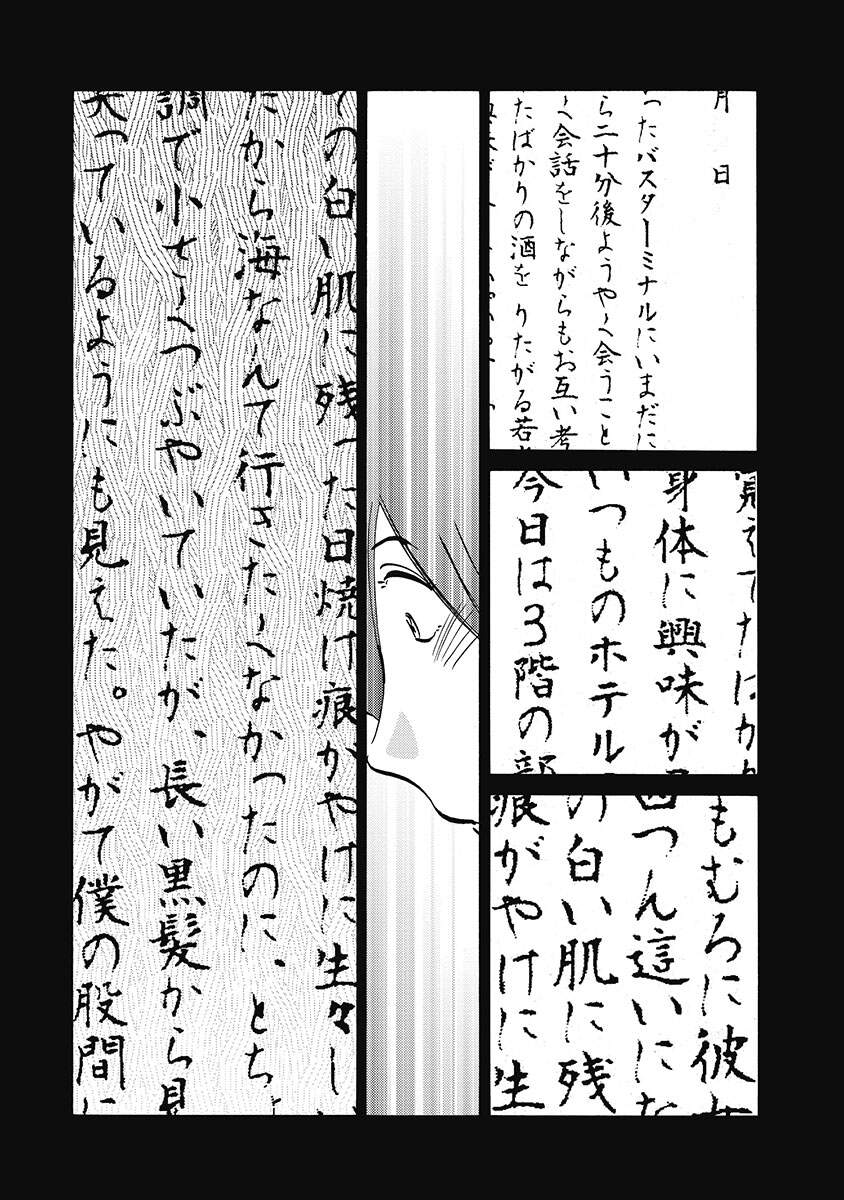 月　日
ったバスターミナルにいまだに
ら二十分後ようやく会うこと
く会話をしながらもお互い考
たばかりの酒を　りたがる若
覚えてたばか
身体に興味が
いつものホテル
今日は3階の部
もむろに彼女
四つん這いにな
の白い肌に残
痕がやけに生
ての白い肌に残った日焼け痕がやけに生々し
だから海なんて行きたくなかったのに、とち
調で小さくつぶやいていたが、長い黒髪から見
笑っているようにも見えた。やがて僕の股間に